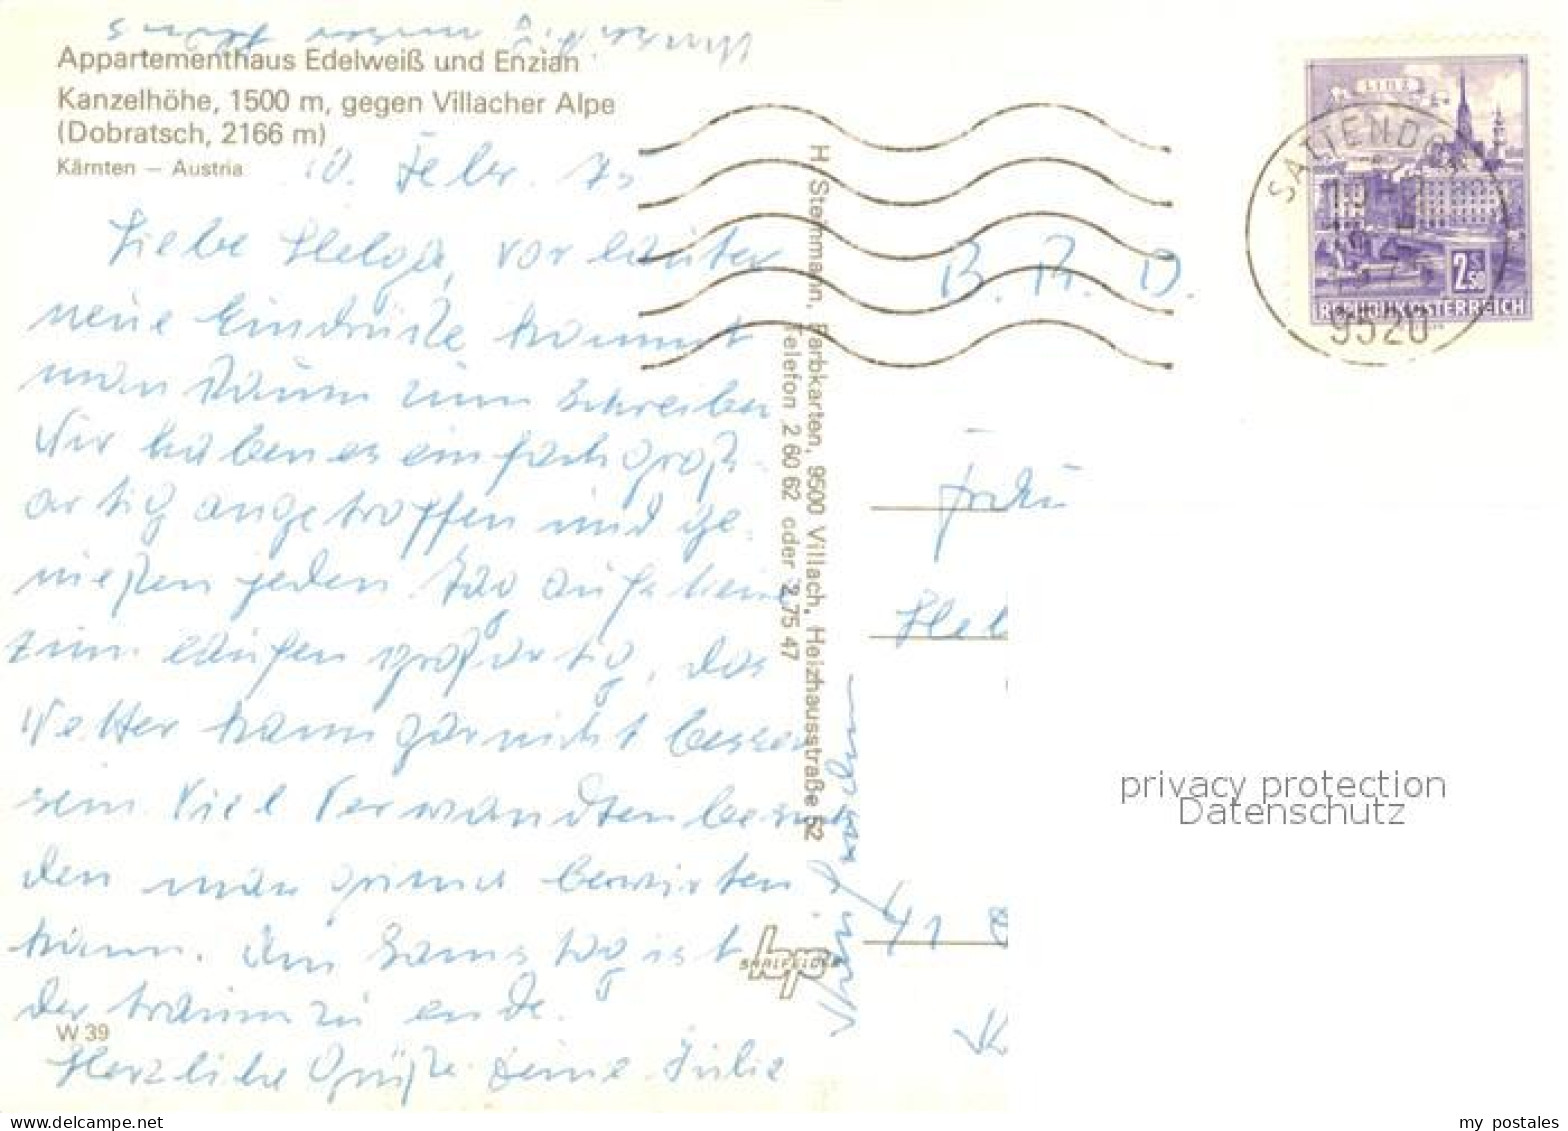 Appartementhaus Edelweiß und Enzian
Kanzelhöhe, 1500 m, gegen Villacher Alpe
(Dobratsch, 2166 m)
Kärnten — Austria
10. Febr. 75
Liebe Helga, vor lauter
neue Eindrücke kommt
man kaum zum schreiben
Wir haben es einfach groß-
artig angetroffen und ge-
nießen jeden Tag aufs neue
zum laufen großartig, das
Wetter kann garnicht besser
sein. Viel Verwandten besuch
den man prima bewirten
kann. Am Samstag ist
der traum zu ende.
Herzliche Grüße Deine Julie
W 39
H. Steinmann, Farbkarten, 9500 Villach, Heizhausstraße 52
Telefon 2 60 62 oder 2 75 47
SAALFELDEN
B. R. D.
Frau
Hel
41
LINZ
2 S 50
REPUBLIK ÖSTERREICH
SATTENDORF
9520
privacy protection
Datenschutz
my postales